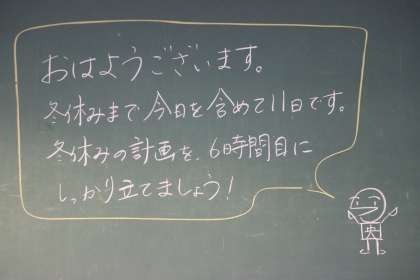 おはようございます。
冬休みまで今日を含めて11日です。
冬休みの計画を、6時間目に
しっかり立てましょう!